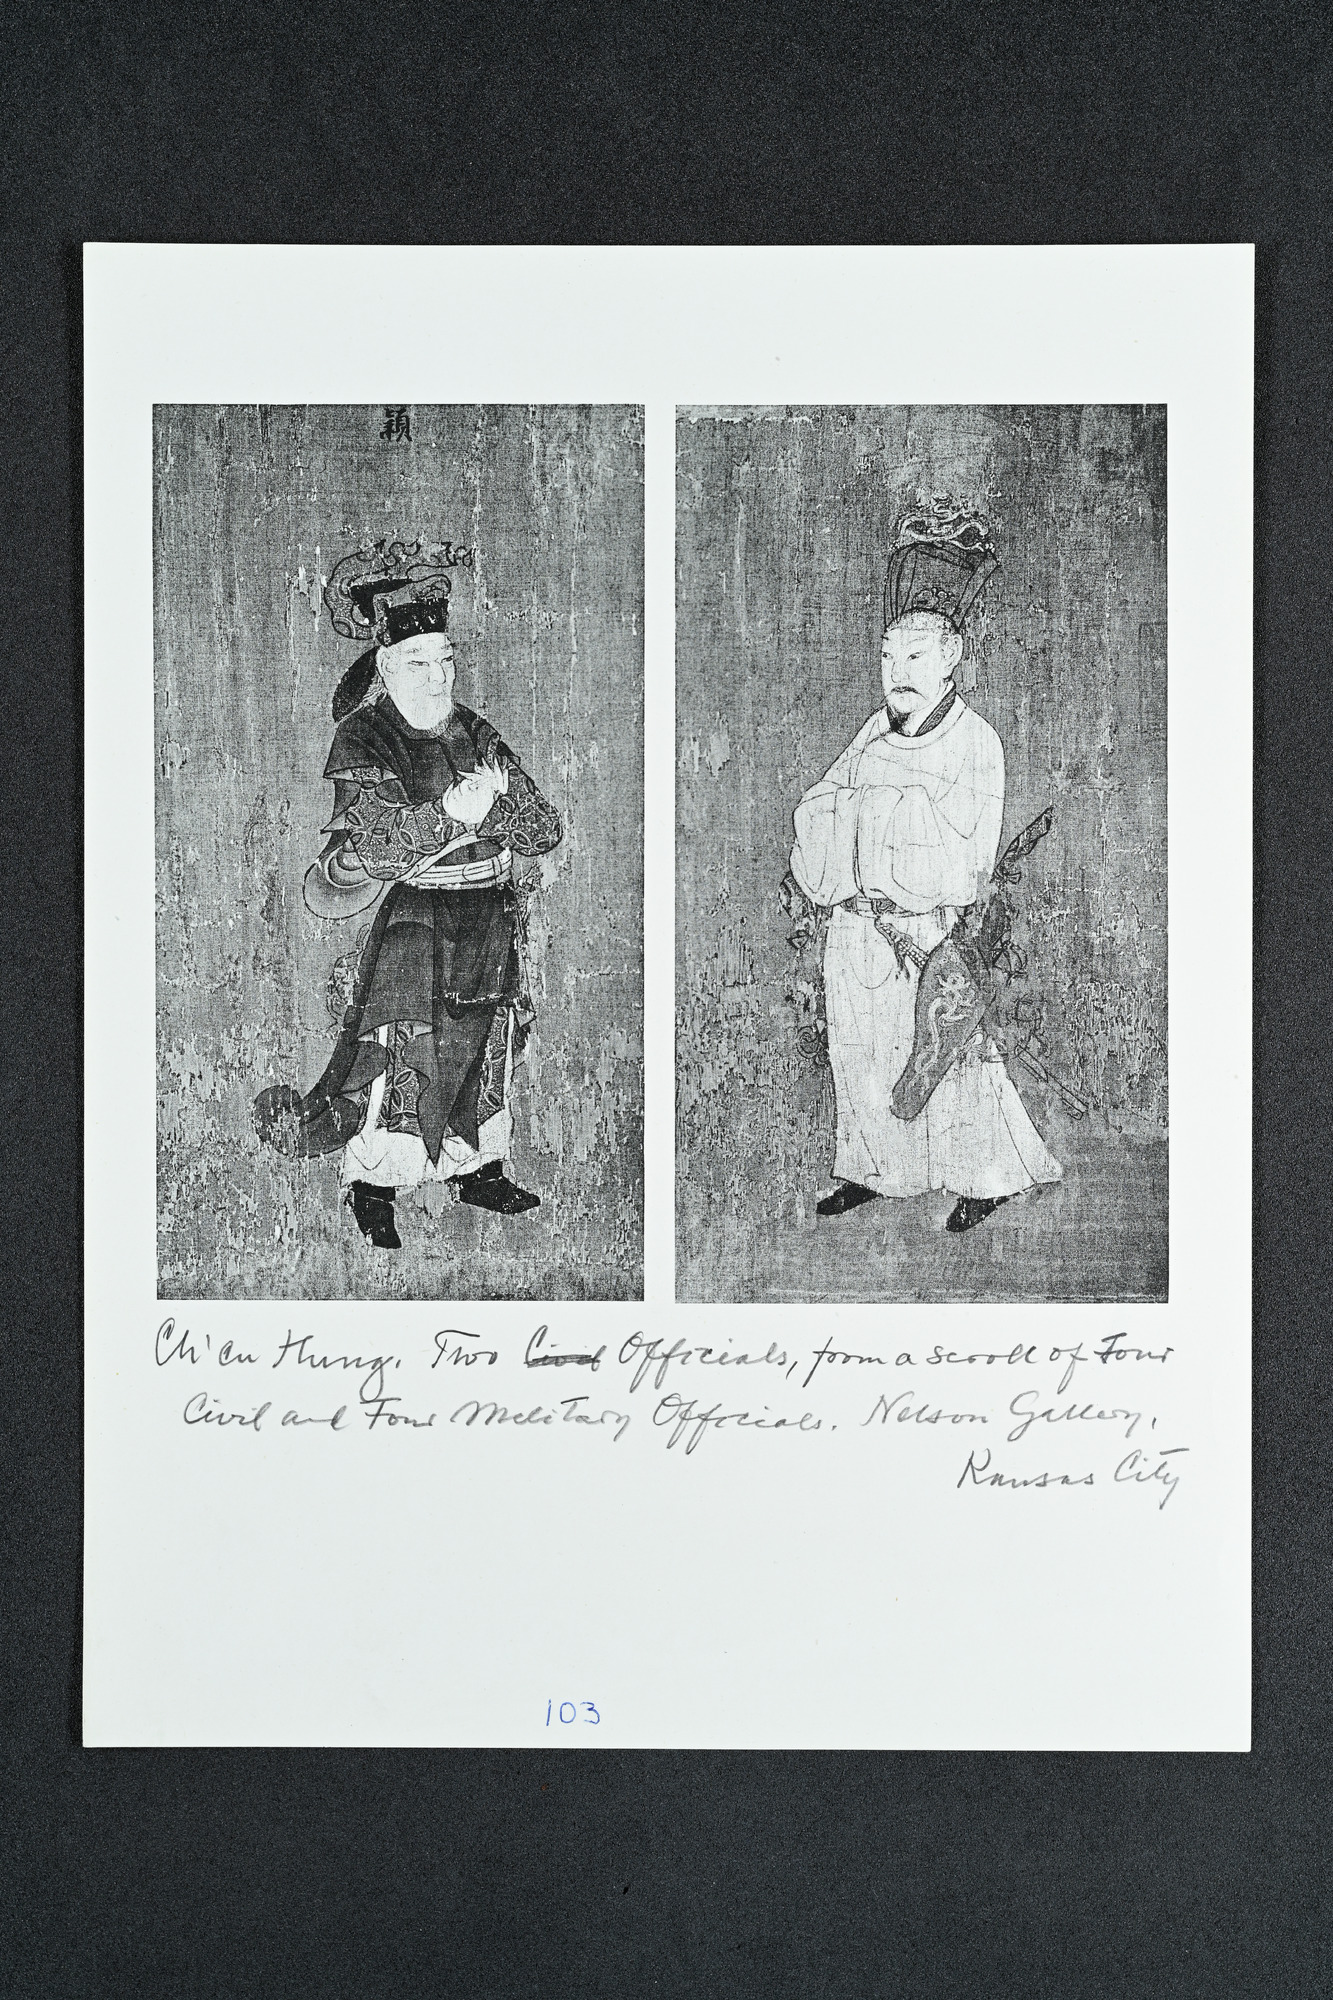 穎
Ch'en Hung. Two Civil Officials, from a scroll of Four
Civil and Four Military Officials. Nelson Gallery,
Kansas City
103